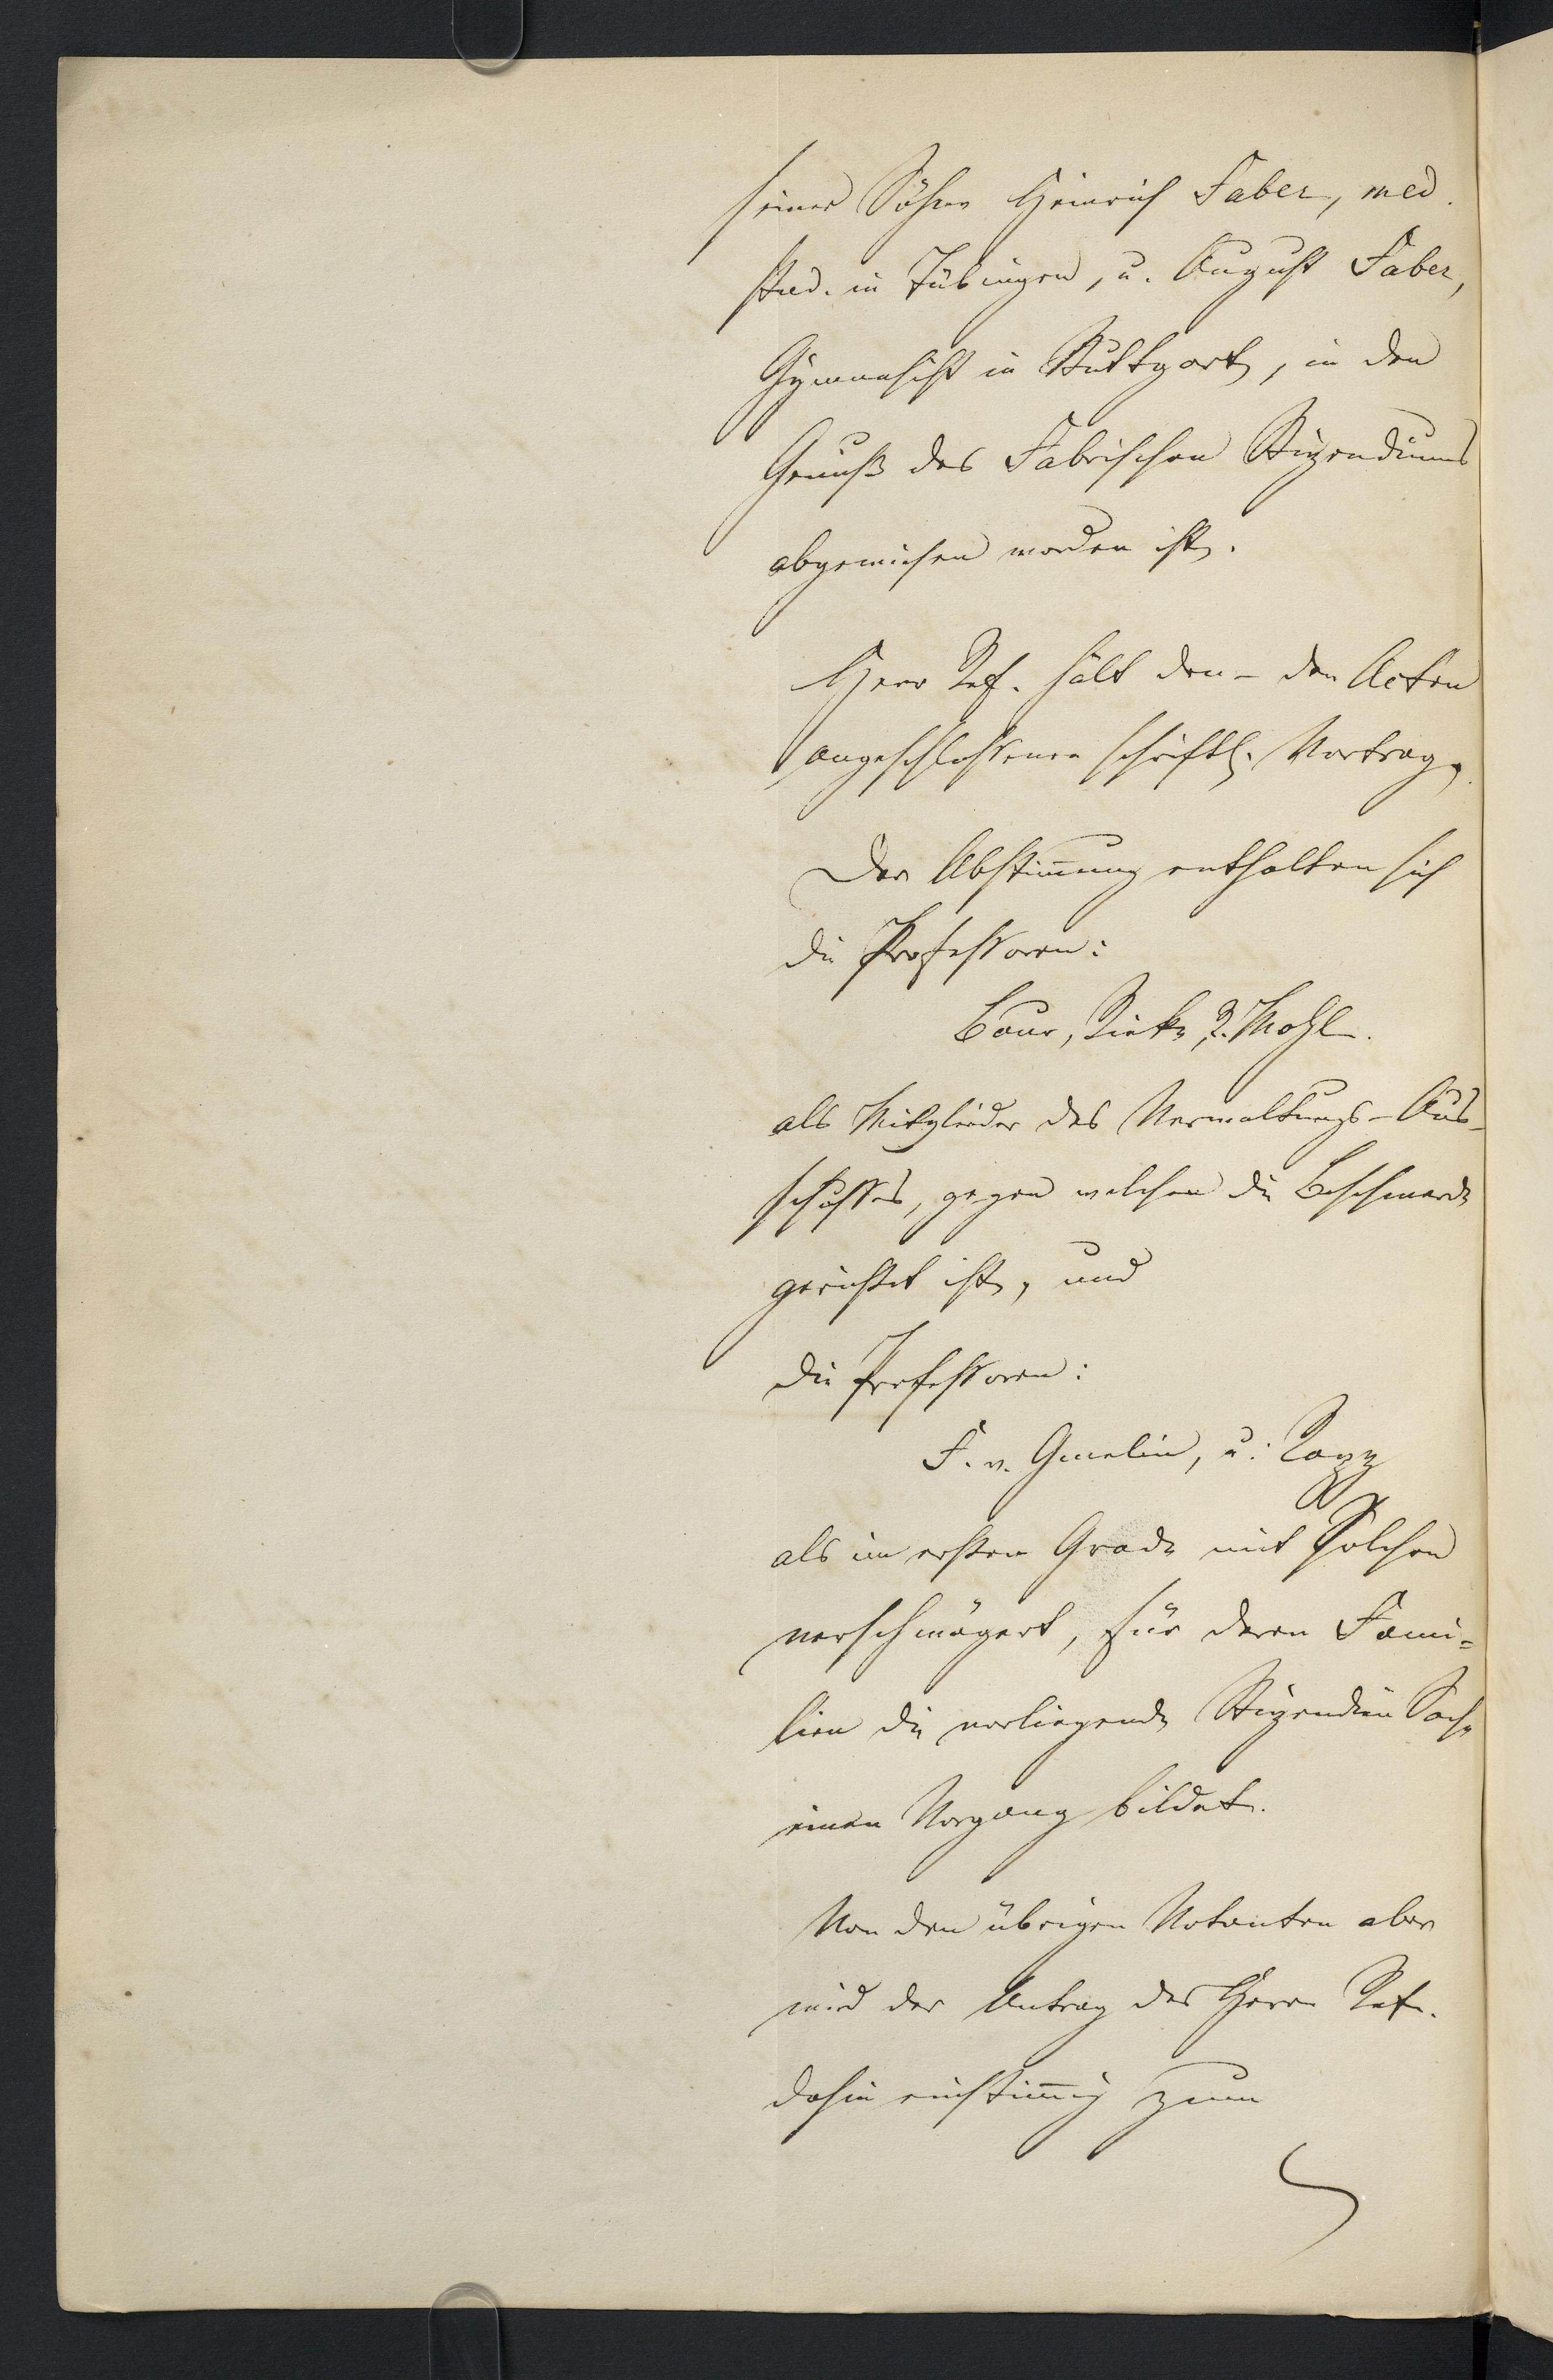 seiner Söhne Heinrich Faber, med.
stud. in Tübingen, u. August Faber,
Gymnasist in Stuttgart, in den
Genuß des Fabrischen Stipendiums
abgewiesen worden ist.
Herr Ref. hält den - den Acten
angeschlossenen schriftl. Vortrag.
Der Abstim̄ung enthalten sich
die Professoren:
Baur, Rieke, R. Mohl.
als Mitglieder des Verwaltungs-Aus-
schusses, gegen welchen die Beschwerde
gerichtet ist, und
die Professoren:
F. v. Gmelin, u. Rapp
als im ersten Grade mit Solchen
verschwägert, für deren Fami-
lien die vorliegende Stipendien Sache
einen Vorgang bildet.
Von den übrigen Votanten aber
wird der Antrag des Herrn Refr.
dahin einstim̄ig zum